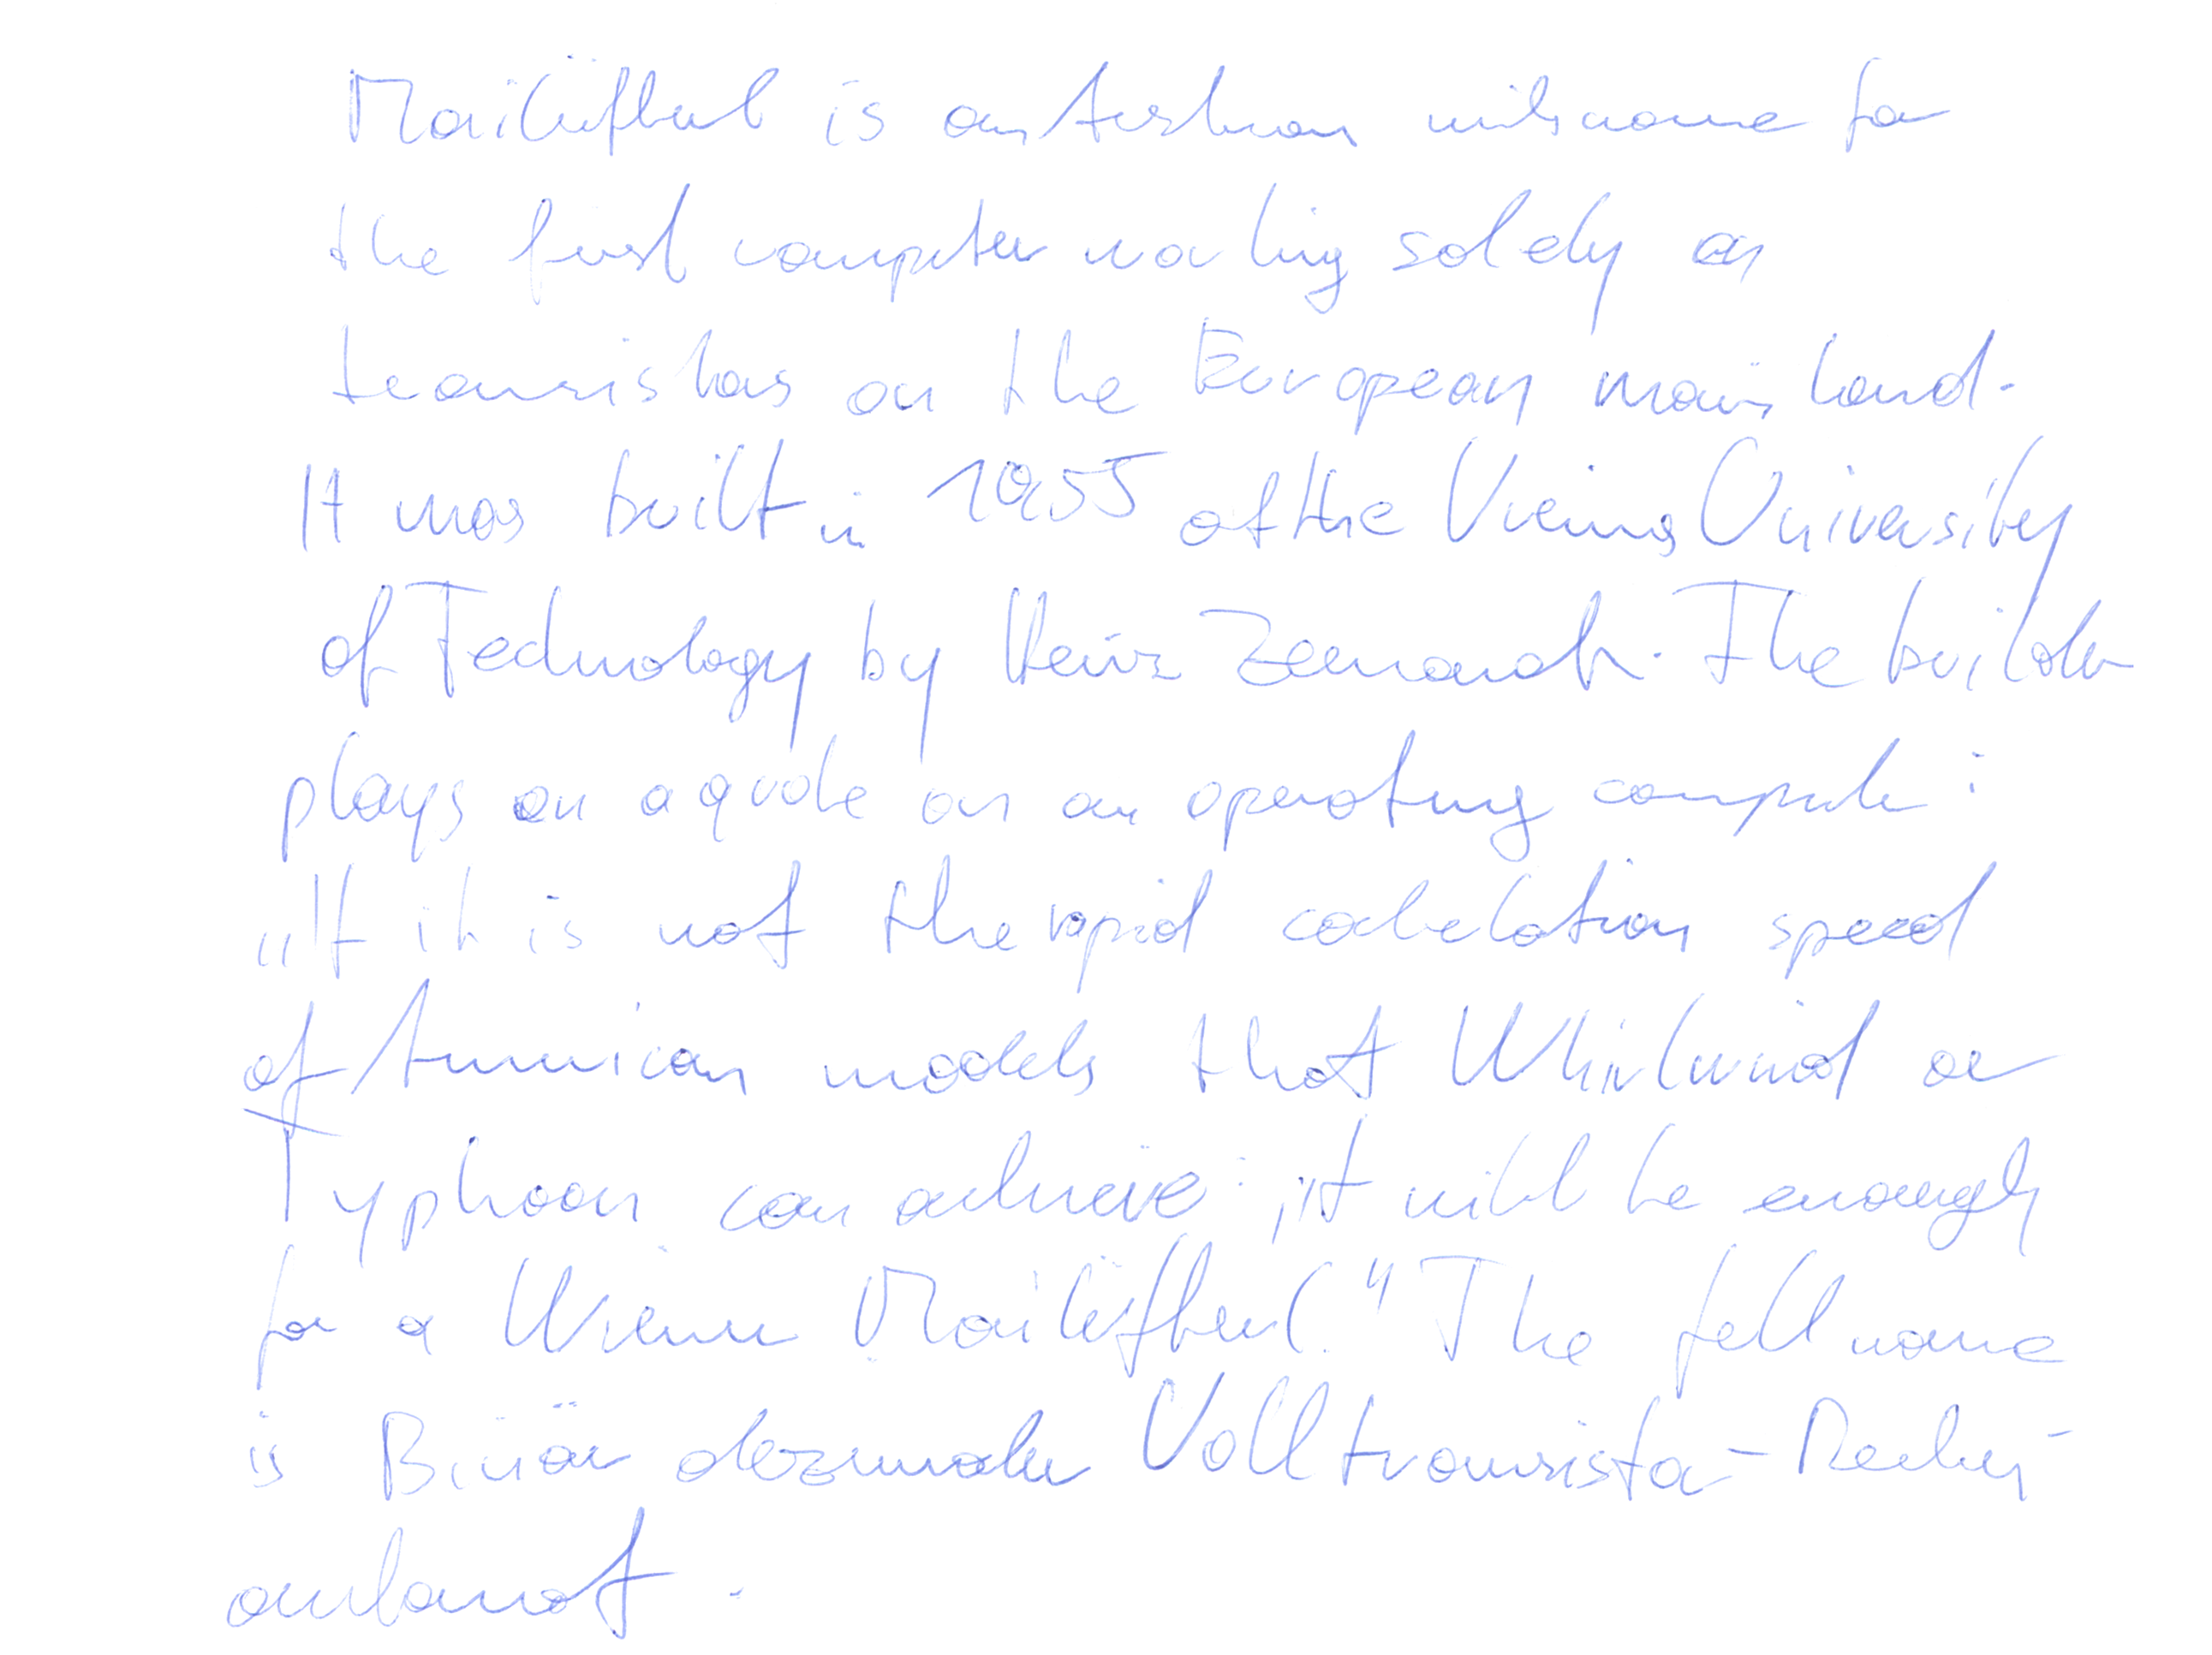 Mailüfterl is an Austrian nickname for
the first computer working solely on
transistors on the European mainland.
It was built in 1955 at the Vienna University
of Technology by Heinz Zemanek. The builder
plays on a quote on an operating computer:
„If it is not the rapid calculation speed
of American models that Whirlwind or
Typhoon can achieve, it will be enough
for a Wiener Mailüfterl." The full name
is Binär dezimaler Volltransistor-Rechen-
automat.